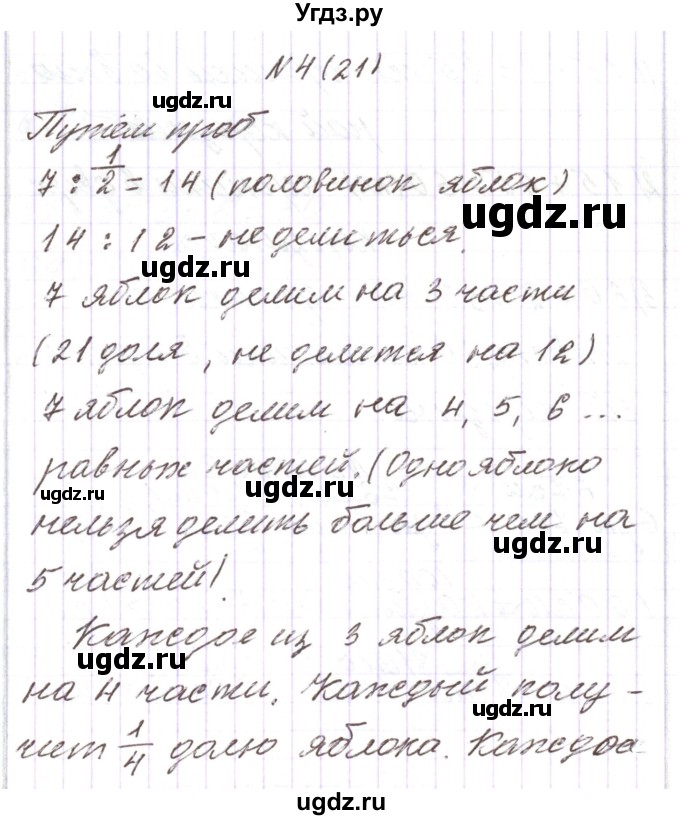 Угдз.ру
N4(21)
ugdz.ru
Путём проб
7 : 1/2 = 14 (половинок яблок)
ugdz.ru
ugdz.ru
14 : 12 - не делиться.
ugdz.ru
7 яблок делим на 3 части
(21 доля, не делится на 12)
ugdz.ru
7 яблок делим на 4, 5, 6 ...
равных частей. (Одно яблоко
ugdz.ru
ugdz.ru
нельзя делить больше чем на
ugdz.ru
5 частей).
Каждое из 3 яблок делим
ugdz.ru
на 4 части. Каждый полу-
ugdz.ru
чит 1/4 долю яблока. Каждое
ugdz.ru
ugdz.ru